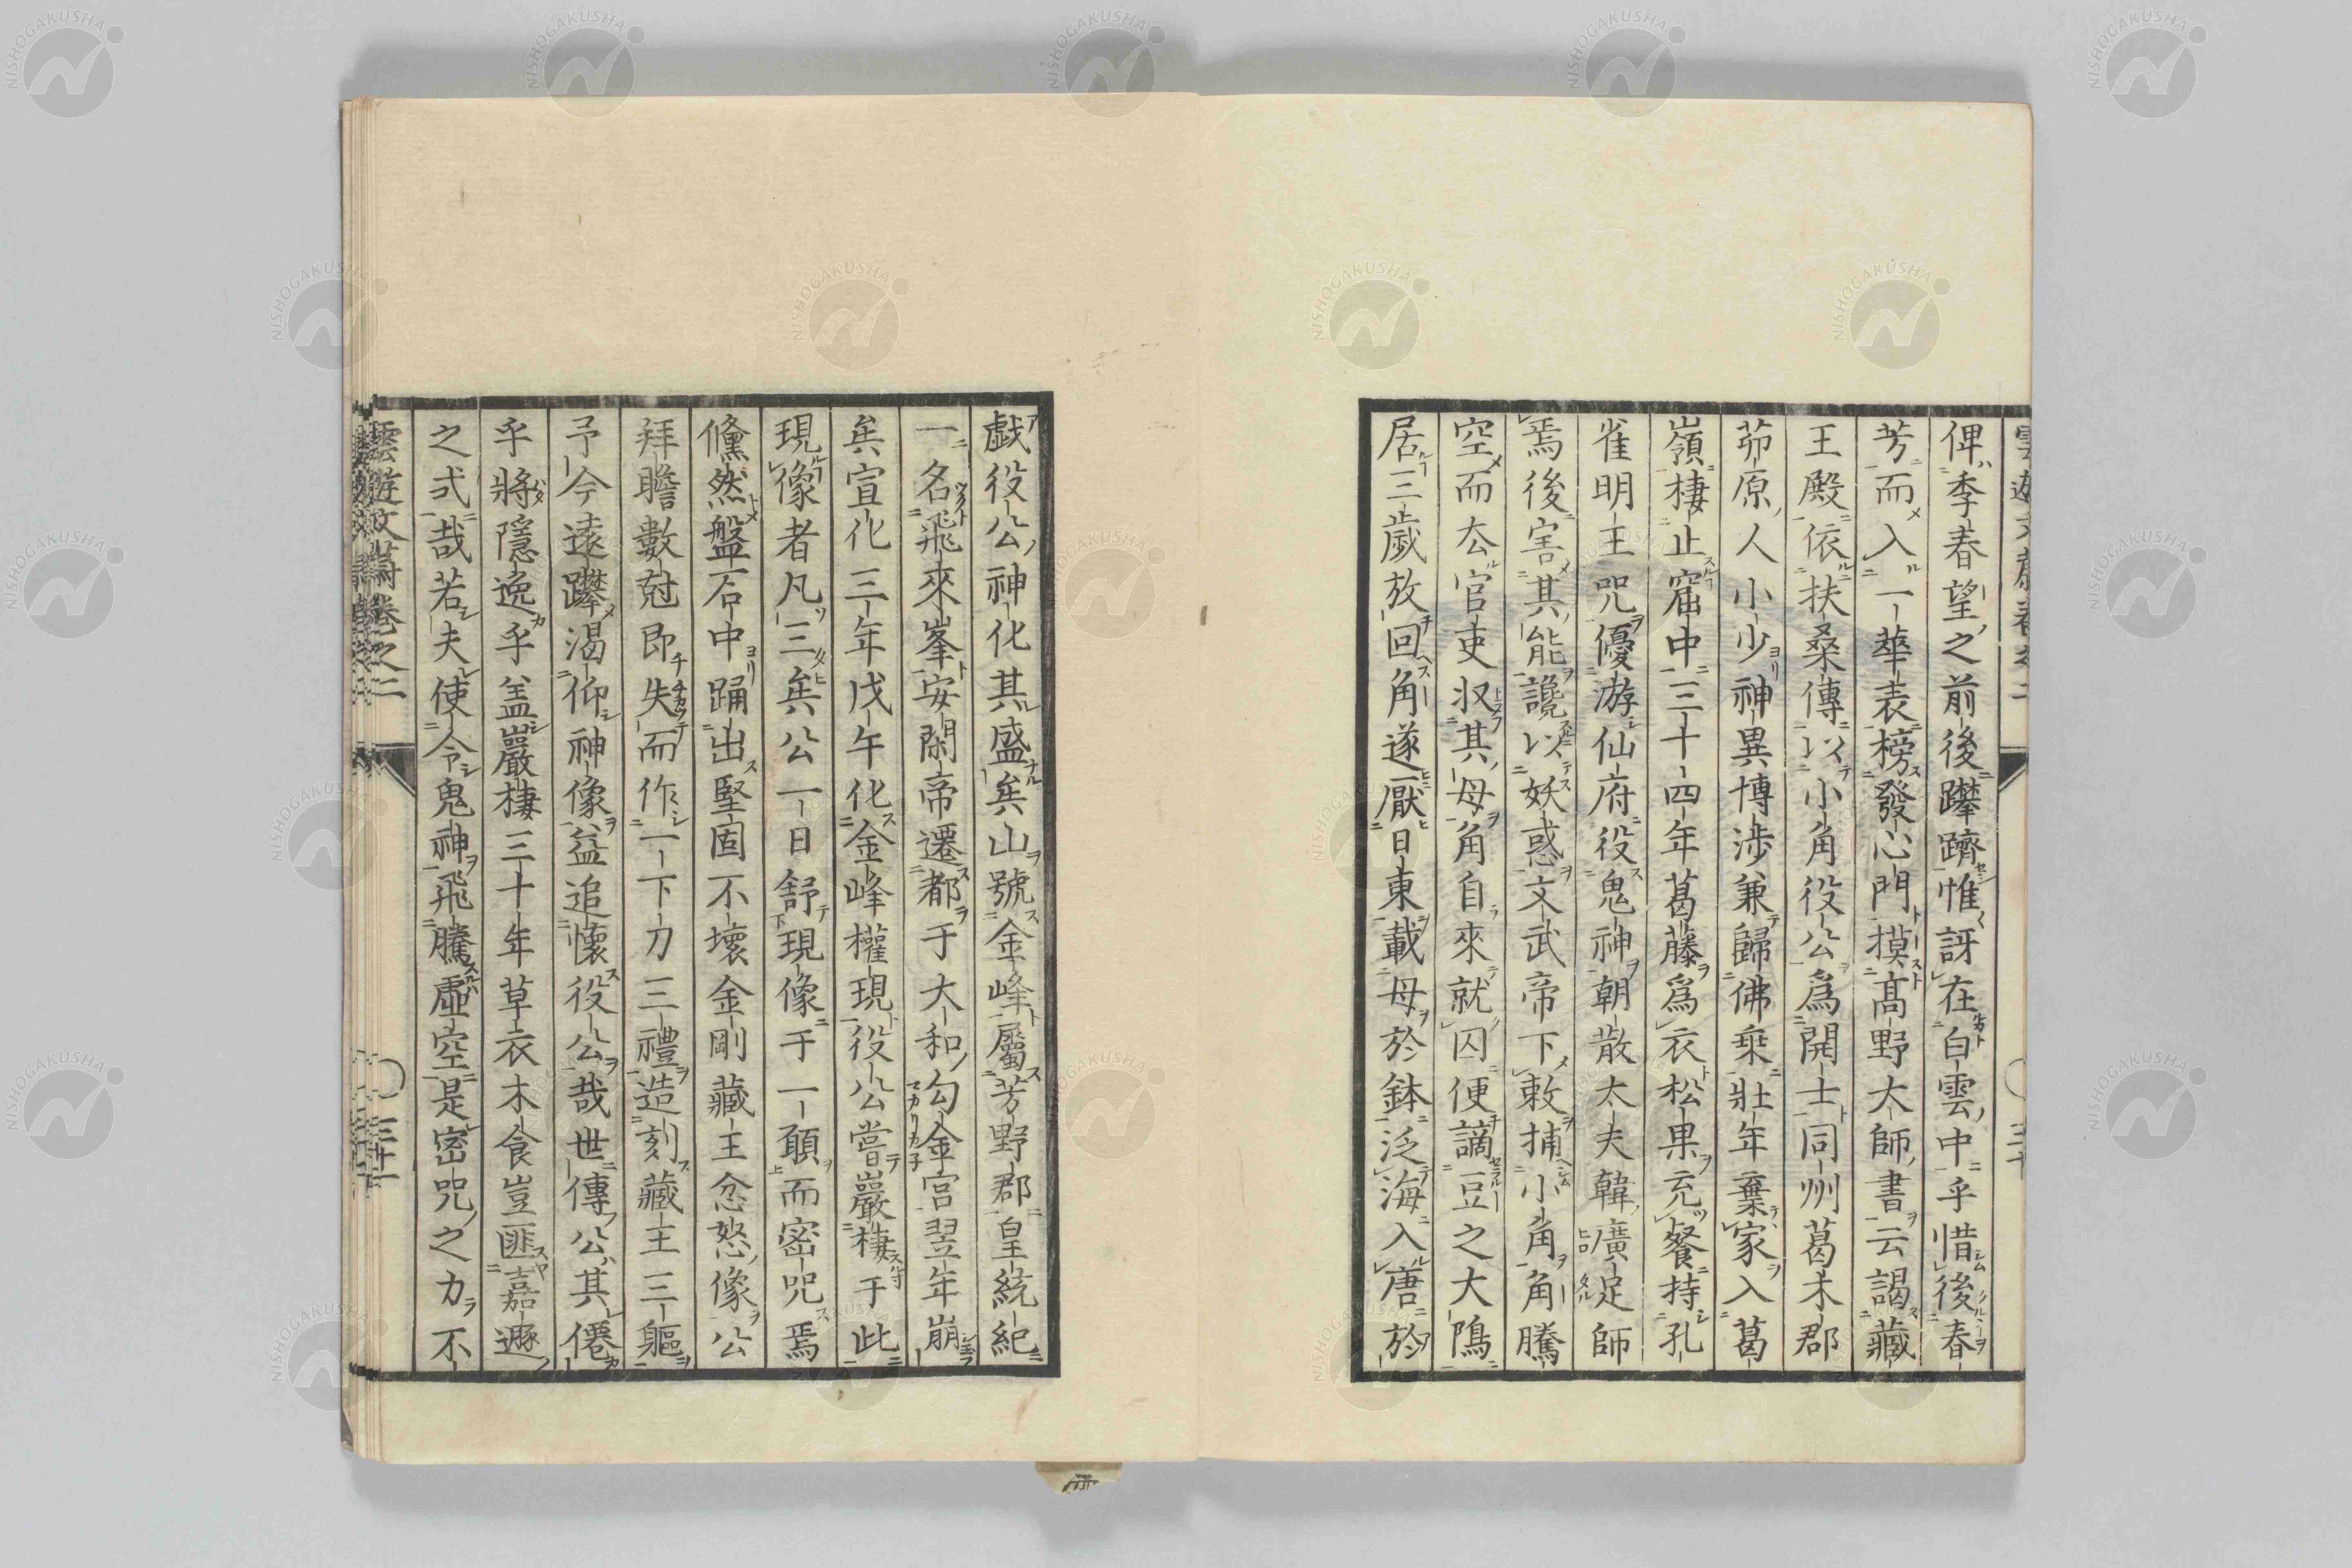 俾季春望之前後躋躋惟訝在白雲中乎惜後春
芳而入一華表榜發心門摸髙野大師書云謁藏
王殿依扶桑傳以小角役公爲開士同州葛木郡
茆原人小少神異博渉兼歸佛乗壯年棄家入葛
嶺棲止窟中三十四年葛藤爲衣松果充餐持孔
雀明王咒優游仙府役鬼神朝散太夫韓廣足師
焉後害其能讒以妖惑文武帝下敕捕小角角騰
空而厺官吏収其母角自來就囚便謫豆之大隝
居三歲放回角遂厭日東載母於鉢泛海入唐於
戲役公神化其盛矣山號金峰屬芳野郡皇統紀
一名飛來峯安閑帝遷都于大和勾金宮翌年崩
矣宣化三年戊午化金峰權現役公嘗巖棲于此
現像者凡三矣公一日舒現像于一願而密咒焉
儵然盤石中踊出堅固不壞金剛藏王忿怒像公
拜瞻數尅即失而作一下刀三禮造刻藏王三軀
予今遠躋渴仰神像益追懷役公哉世傳公其僊
乎將隱逸乎盖巖棲三十年草衣木食豈匪嘉遯
之弍哉若夫使令鬼神飛騰虛空是密咒之力不
雲遊文蔚卷之二
三十
NISHOGAKUSHA